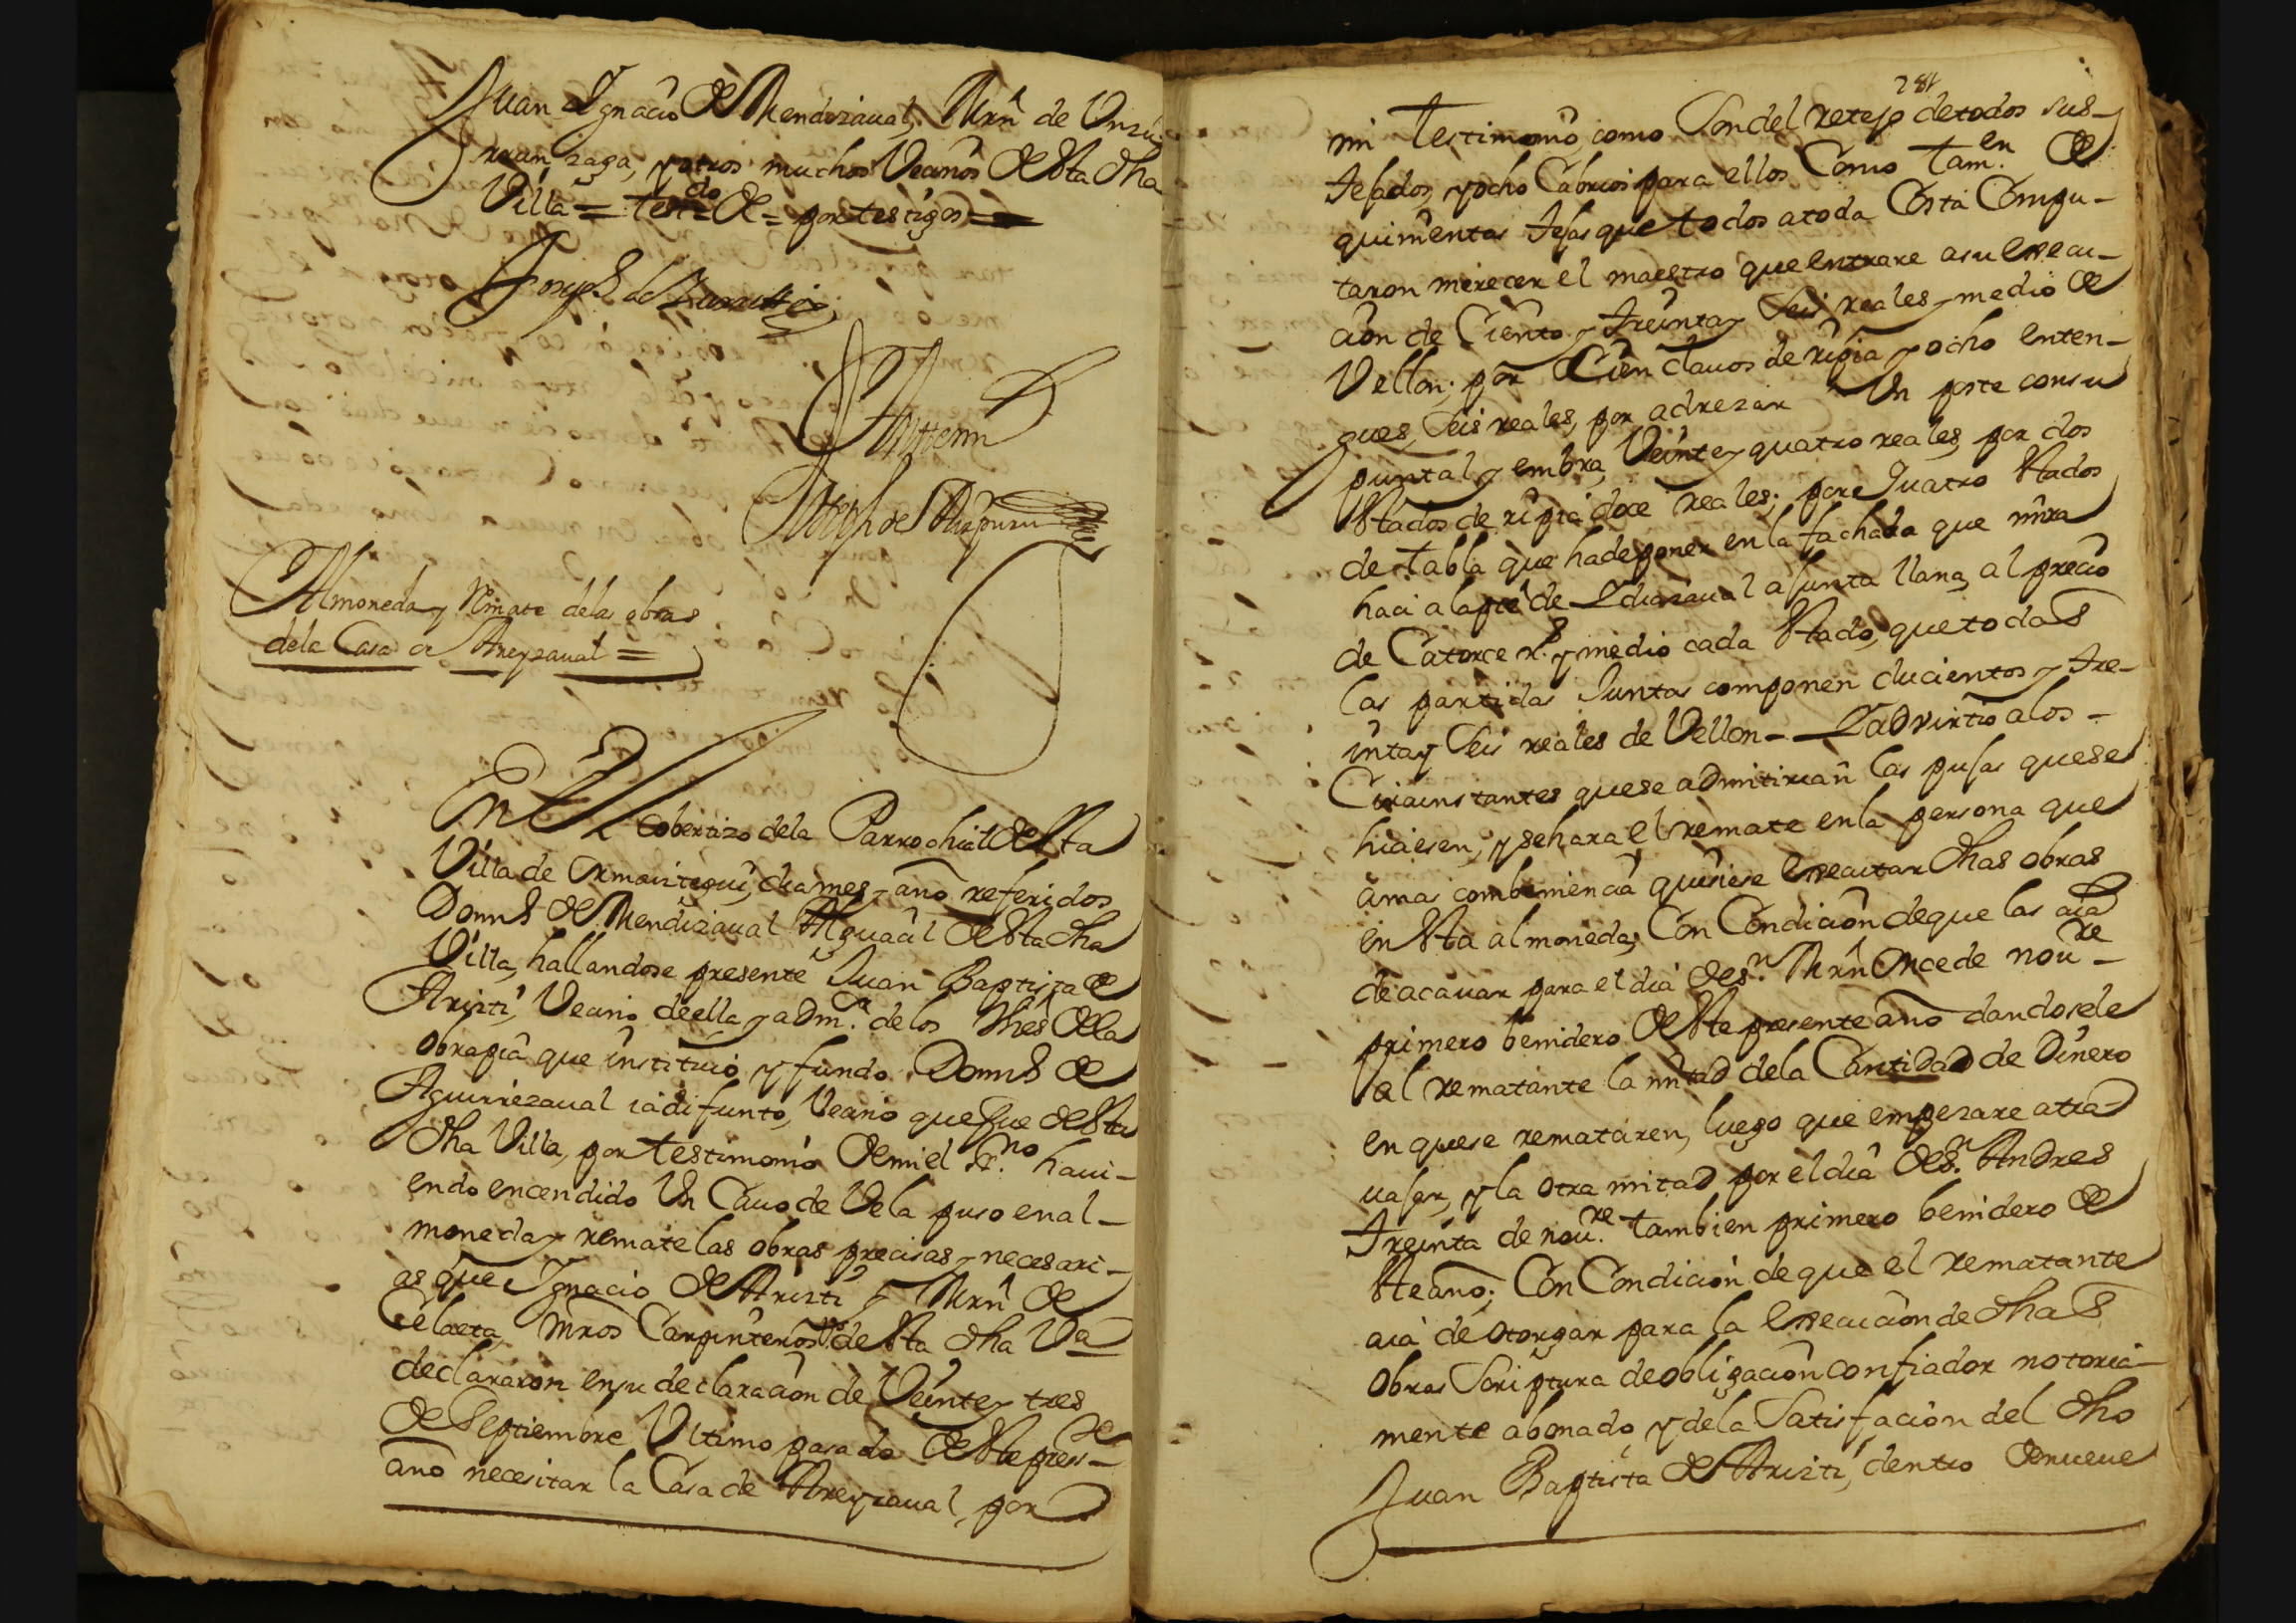 Juan Ignacio de Mendizaual, Mrñ de Unzu
rrunzaga, y otros muchos Vecinos de esta dha
Villa = testdo = de = por testigos =
Joseph de
Antemi
Joseph de
Almoneda y Remate delas obras
dela Casa de Areyzaual =
En El cobertizo dela Parrochial de esta
Villa de Ormaiztegui, dia mes y año referidos
Domns de Mendizaual Alguacil de esta dha
Villa, hallandose presente Juan Baptista de
Aristi, Vecino de ella y adm.or de los Vnes de la
Obrapia que instituio y fundo Domns de
Aguirrezaual iadifunto, Vecino que fue de esta
dha Villa, por testimonio de mi el Ss.no haui-
endo encendido Un Cauo de Vela puso en al-
moneda y remate las obras precisas y necesari-
as que Ignacio de Aristi y Mrñ de
Celaeta, Mros Carpinteros Vos de esta dha Va
declararon en su declaracion de Veinte y tres
de Septiembre Ultimo pasado de este preste
año necesitar la Casa de Areyzaual, por
284
mi testimonio como Son del retejo de todos sus
tejados, y ocho Cabrios para ellos Como tam.en de
quinientas tejas que todos a toda Costa Compu-
taron merecer el maestro que entrare a su Execu-
cion de Ciento y treinta y Seis reales y medio de
Vellon; por Cien clauos de ripia y ocho enten-
gues, Seis reales, por adrezar Un poste con su
puntal y embra, Veinte y quatro reales, por dos
estados de ripia doce reales; por Quatro estados
de tabla que hade poner en la fachada que mira
hacia la pte de Echazaual a junta llana, al precio
de Catorce r.s y medio cada estado, que todas
las partidas Juntas componen ducientos y tre-
inta y Seis reales de Vellon = Y advirtio a los
Circunstantes que se admitirian las pujas que se
hiciesen, y se hara el remate en la persona que
a mas combeniencia quisiese Executar dhas obras
en esta almoneda; Con Condicion de que las aia
de acauar para el dia de s.n Mrñ once de nou.re
primero benidero de este presente año dandosele
al rematante la mitad de la Cantidad de Dinero
en que se remataren, luego que empezare a tra-
uajar, y la otra mitad por el dia de S.n Andres
treinta de nou.re tambien primero benidero de
este año; Con Condicion de que el rematante
aia de otorgar para la Execucion de dhas
obras Scriptura de obligacion con fiador notoria-
mente abonado, y de la Satisfacion del dho
Juan Baptista de Aristi, dentro de nueue